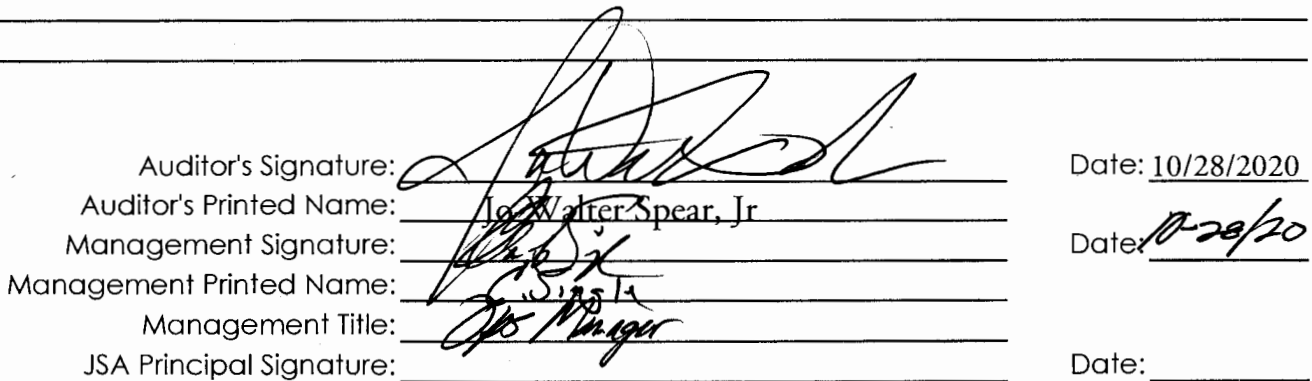 Auditor's Signature: Date: 10/28/2020
Auditor's Printed Name: Jo Walter Spear, Jr
Management Signature: Date: 10-28/20
Management Printed Name:
Management Title: Ops Manager
JSA Principal Signature: Date: